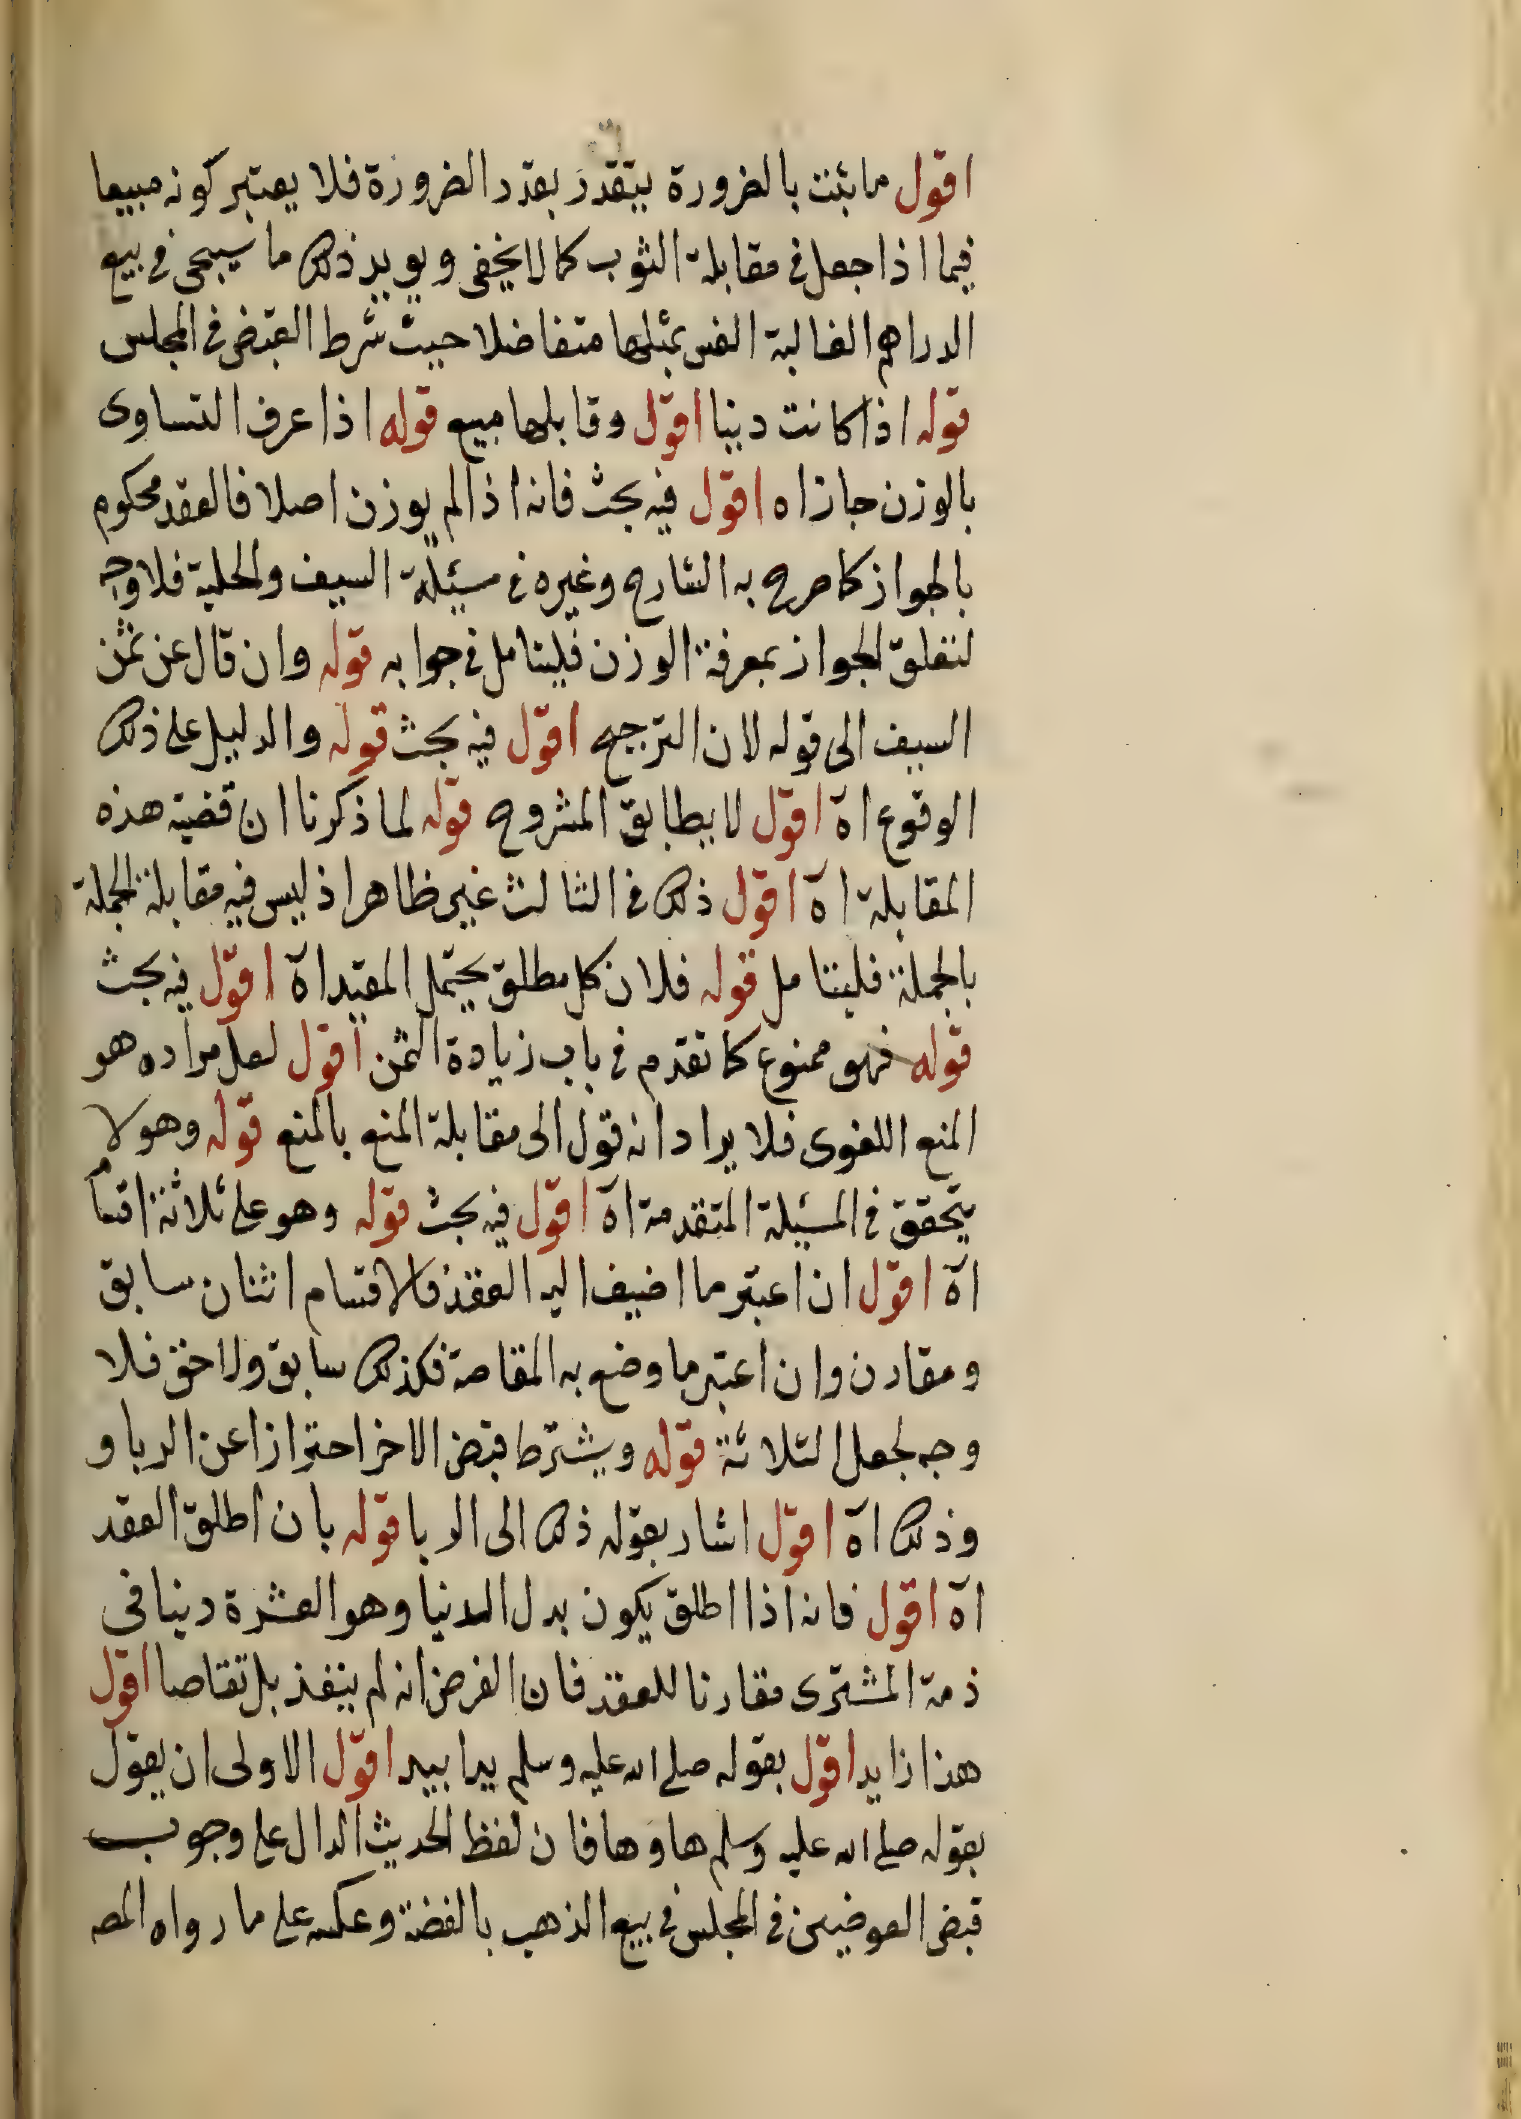 اقول ما ثبت بالضرورة يتقدر بقدر الضرورة فلا يعتبر كونه مبيعا
فيما اذا جعل في مقابلة الثوب كما لا يخفى ويويد ذلك ما سيجى في بيع
الدراهم الغالبة الغش بمثلها متفاضلا حيث شرط القبض في المجلس
قوله اذا كانت دينا اقول وقابلها مبيع قوله اذا عرف التساوى
بالوزن جاز اه اقول فيه بحث فانه اذا لم يوزن اصلا فالعقد محكوم
بالجواز كما صرح به الشارح وغيره في مسئلة السيف والحلية فلا وجه
لتعلق الجواز بمعرفة الوزن فليتامل في جوابه قوله وان قال عن ثمن
السيف الى قوله لان الترجيح اقول فيه بحث قوله والدليل على ذلك
الوقوع اه اقول لا يطابق المشروح قوله لما ذكرنا ان قضية هذه
المقابلة اه اقول ذلك في الثالث غير ظاهر اذ ليس فيه مقابلة الجملة
بالجملة فليتامل قوله فلان كل مطلق يحتمل المقيد اه اقول فيه بحث
قوله فهو ممنوع كما تقدم في باب زيادة الثمن اقول لعل مراده هو
المنع اللغوى فلا يراد انه قول الى مقابلة المنع بالمنع قوله وهو لا
يتحقق في المسئلة المتقدمة اه اقول فيه بحث قوله وهو على ثلاثة اقسام
اه اقول ان اعتبر ما اضيف اليه العقد فالاقسام اثنان سابق
ومقارن وان اعتبر ما وضع به المقاصة فكذلك سابق ولاحق فلا
وجه لجعل الثلاثة قوله ويشترط قبض الاخر احترازا عن الربا و
وذلك اه اقول اشار بقوله ذلك الى الربا قوله بان اطلق العقد
اه اقول فانه اذا اطلق يكون بدل الدنيا وهو العشرة دينا في
ذمة المشترى مقارنا للعقد فان الفرض انه لم ينفذ بل تقاصا اقول
هذا زايد اقول بقوله صلى الله عليه وسلم يدا بيد اقول الاولى ان يقول
بقوله صلى الله عليه وسلم ها وها فان لفظ الحديث الدال على وجوب
قبض العوضين في المجلس في بيع الذهب بالفضة وعكسه على ما رواه المصـ